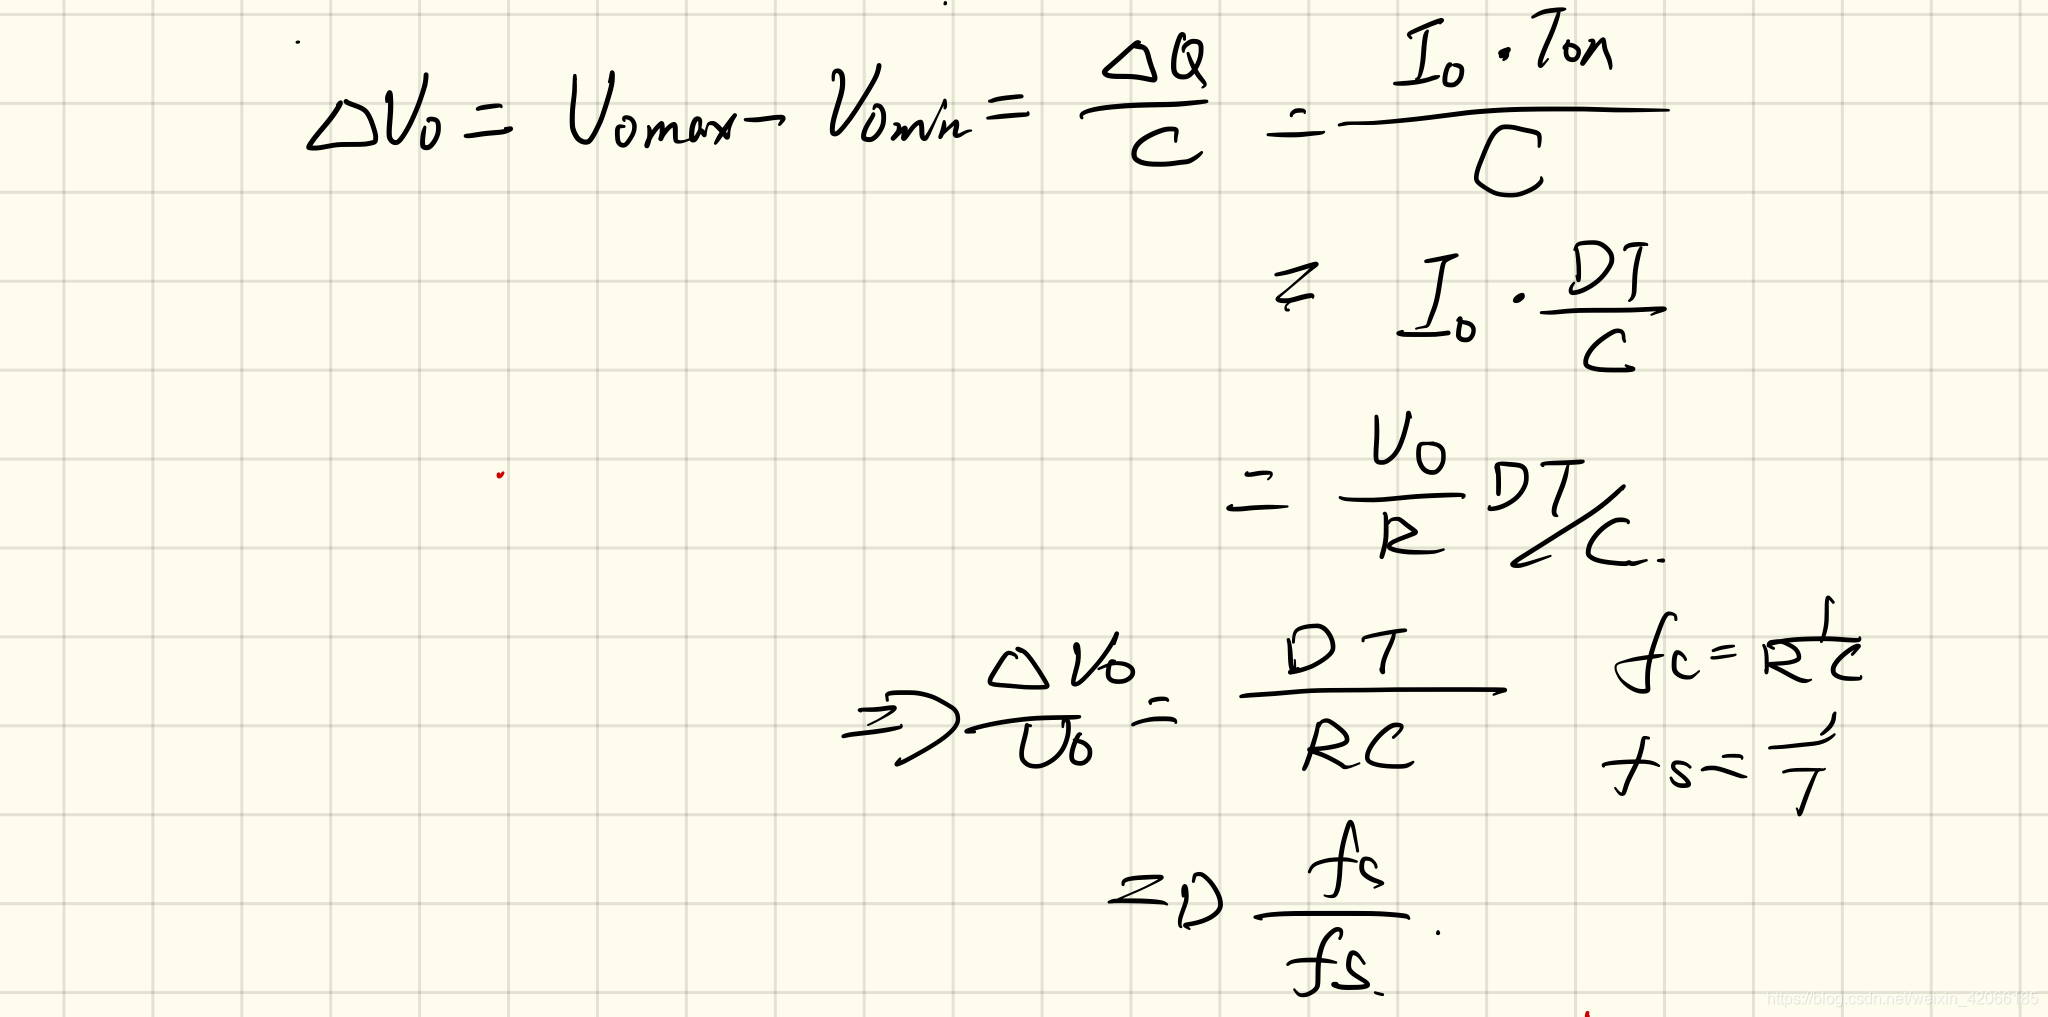 ΔV₀ = U₀max − V₀min = ΔQ/C = I₀·Ton/C
= I₀·DT/C
= U₀/R DT/C.
⇒ ΔV₀/U₀ = DT/RC fc = 1/RC
fs = 1/T
= D fc/fs.
https://blog.csdn.net/weixin_42066185